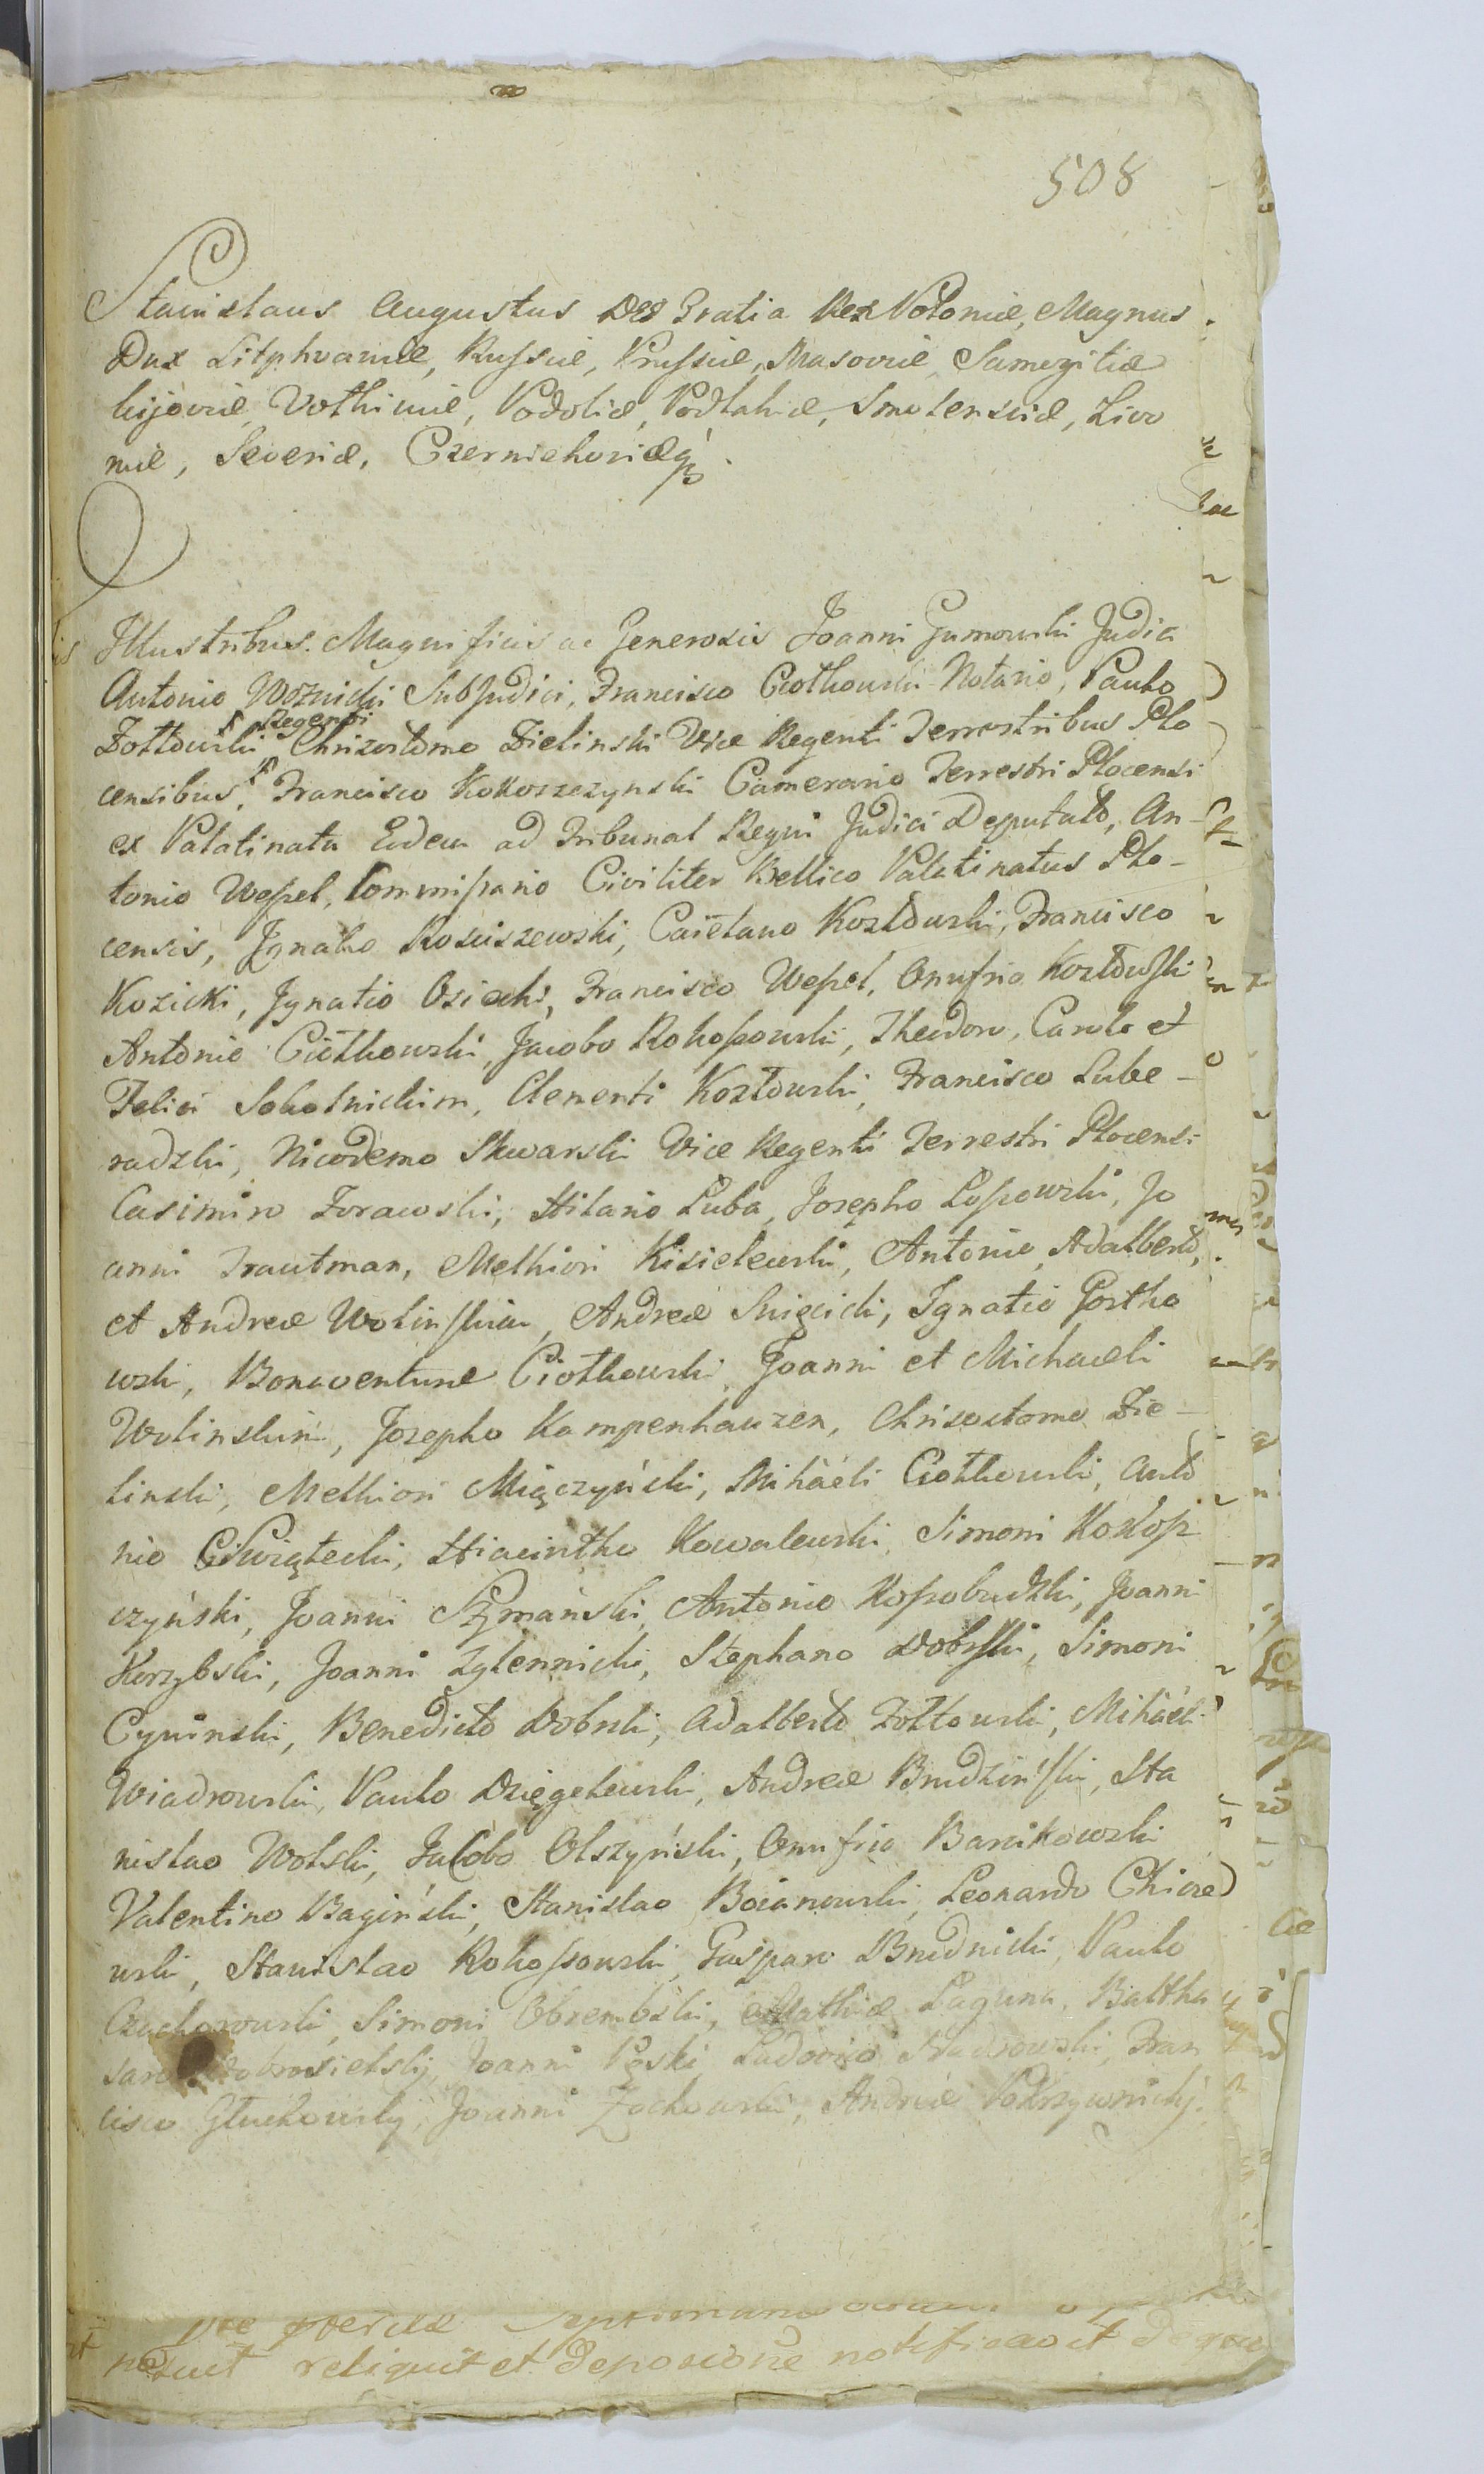 508
Stanislaus Augustus Dei Gratia Rex Poloniæ, Magnus
Dux Lithvaniæ, Russiæ, Prussiæ, Masoviæ, Samogitiæ
Kijoviæ, Volhiniæ, Podoliæ, Podlahiæ, Smolensciæ, Livo
niæ, Severiæ, Czerniehoviæq3.
Illustribus. Magnificis ac Generosis Joanni Gumowski Judici
Antonio Woznicki Subjudici, Francisco Ciołkowski Notario, Paulo
Regenti
Zołtowski Chrizostomo Zielinski Vice Regenti Terrestribus Plo
censibus, Francisco Kokoszczynski Camerario Terrestri Plocensi
ex Palatinatu Eodem ad Tribunal Regni Judici Deputato, An-
tonio Wessel, Commissario Civiliter Bellico Palatinatus Plo-
censis, Ignatio Rosciszewski, Caietano Kozłowski, Francisco
Kozicki, Ignatio Osiecki, Francisco Wessel, Onufrio Kozłowski
Antonio Ciołkowski, Jacobo Rokossowski, Theodoro, Carolo et
Felici Sokolnickim, Clementi Kozłowski, Francisco Lube-
radzki, Nicodemo Skwarski Vice Regenti Terrestri Plocensi
Casimiro Zorawski, Hilario Łuba, Josepho Lossowski, Jo
anni Trautman, Melhiori Kisielewski, Antonio, Adalberto,
et Andreæ Wolinskim, Andreæ Snięcicki, Ignatio Gostko
wski, Bonaventuræ Ciołkowski, Joanni et Michaeli
Wolinskim, Josepho Kampenhauzen, Chrisostomo Zie-
linski, Melhiori Miączyński, Mihaeli Ciołkowski, Anto
nio Ciświątecki, Hiacintho Kowalewski, Simoni
czyński, Joanni Szymański, Antonio Kossobudzki, Joanni
Korzybski, Joanni Zglennicki, Stephano Dobrski, Simoni
Cywinski, Benedicto Dobrski, Adalberto Zołtowski, Mihaeli
Wiadrowski, Paulo Dzięgelewski, Andreæ Brudzinski, Sta
nislao Wolski, Jacobo Olszyński, Onufrio Barcikowski
Valentino Bagiński, Stanislao Boianowski, Leonardo
wski, Stanislao Rokossowski, Gaspari Brudnicki, Paulo
Czachorowski, Simoni Obrembski, Mathiæ Laguna, Baltha
sari Dobrosielskj, Joanni Pęski, Ludovico, Fran
cisco Głuchowskj, Joanni Zochowski, Andreæ
posuit reliquit et deposicione notificavit